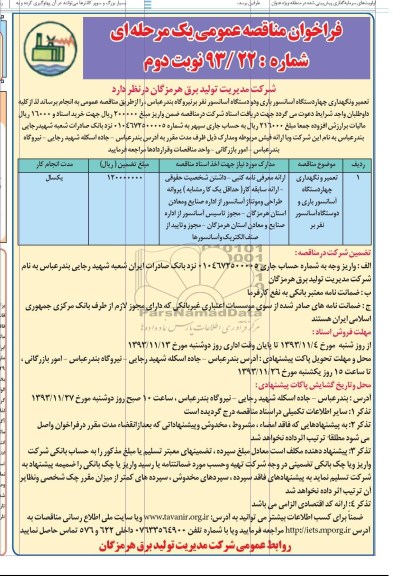 فراخوان مناقصه عمومی یک مرحله ای
شماره : ۹۳/۲۲ نوبت دوم
شرکت مدیریت تولید برق هرمزگان در نظر دارد
تعمیر ونگهداری چهاردستگاه آسانسور باری ودو دستگاه آسانسور نفر بر نیروگاه بندرعباس ، را از طریق مناقصه عمومی به انجام برساند لذا از کلیه
داوطلبان واجد شرایط دعوت می گردد جهت دریافت اسناد شرکت در مناقصه ضمن واریز مبلغ ۲۰۰۰۰۰ ریال جهت خرید اسناد و ۱۶۰۰۰ ریال
مالیات بر ارزش افزوده جمعا مبلغ ۲۱۶۰۰۰ ریال به حساب جاری سپهر به شماره ۰۱۰۴۶۷۲۵۰۰۰۰۵ نزد بانک صادرات شعبه شهید رجایی
بندرعباس به نام این شرکت وبا ارائه فیش مربوطه ومدارک ذیل ظرف مدت مقرر به آدرس بندرعباس - جاده اسکله شهید رجایی - نیروگاه
بندرعباس - امور بازرگانی - واحد مناقصات وقراردادها مراجعه فرمایید
ردیف
موضوع مناقصه
مدارک مورد نیاز جهت اخذ اسناد مناقصه
مبلغ تضمین ( ریال)
مدت انجام کار
۱
تعمیر و نگهداری
چهاردستگاه
آسانسور باری و
دو دستگاه آسانسور
نفر بر
ارائه معرفی نامه کتبی - داشتن شخصیت حقوقی
- ارائه سابقه کار( حداقل یک کار مشابه ) پروانه
طراحی ومونتاژ آسانسور از اداره صنایع ومعادن
استان هرمزگان - مجوز تاسیس آسانسور از اداره
صنایع و معادن استان هرمزگان - مجوز وتایید از
صنف الکتریک و آسانسورها
۱۲۰۰۰۰۰۰۰
یکسال
تضمین شرکت در مناقصه :
الف : واریز وجه به شماره حساب جاری ۰۱۰۴۶۷۲۵۰۰۰۰۵ نزد بانک صادرات ایران شعبه شهید رجایی بندرعباس به نام
شرکت مدیریت تولید برق هرمزگان
ب : ضمانت نامه معتبر بانکی به نفع کارفرما
ج : ضمانت نامه های صادر شده از سوی موسسات اعتباری غیر بانکی که دارای مجوز لازم از طرف بانک مرکزی جمهوری
اسلامی ایران هستند
مهلت فروش اسناد :
از روز شنبه مورخ ۱۳۹۳/۱۱/۴ تا پایان وقت اداری روز دوشنبه مورخ ۱۳۹۳/۱۱/۱۳
محل و مهلت تحویل پاکت پیشنهادی : آدرس بندرعباس - جاده اسکله شهید رجایی - نیروگاه بندرعباس - امور بازرگانی ،
تا ساعت ۱۵ روز یکشنبه مورخ ۱۳۹۳/۱۱/۲۶
محل وتاریخ گشایش پاکات پیشنهادی :
آدرس : بندرعباس - جاده اسکله شهید رجایی - نیروگاه بندرعباس ، ساعت ۱۰ صبح روز دوشنبه مورخ ۱۳۹۳/۱۱/۲۷
تذکر ۱: سایر اطلاعات تکمیلی در اسناد مناقصه درج گردیده است
تذکر ۲: به پیشنهادهایی که فاقد امضاء ، مشروط ، مخدوش وپیشنهاداتی که بعد از انقضاء مدت مقرر در فراخوان واصل
می شود مطلقا ترتیب اثر داده نخواهد شد
تذکر ۳: پیشنهاد دهنده مکلف است معادل مبلغ سپرده ، تضمینهای معتبر تسلیم یا مبلغ مذکور را به حساب بانکی شرکت
واریز ویا چک بانکی تضمینی در وجه شرکت تهیه وحسب مورد ضمانتنامه یا رسید واریز یا چک بانکی را ضمیمه پیشنهاد به
شرکت تسلیم نماید به پیشنهادهای فاقد سپرده ، سپرده های مخدوش ، سپرده های کمتر از میزان مقرر چک شخصی ونظایر
آن ترتیب اثر داده نخواهد شد
تذکر ۴: ارائه کد اقتصادی الزامی می باشد
ضمنا برای کسب اطلاعات بیشتر می توانید به آدرس: www.tavanir.org.ir ویا سایت ملی اطلاع رسانی مناقصات به
آدرس http://iets.mporg.ir مراجعه فرمایید ویا با شماره تلفن ۰۷۶۳۳۵۶۴۹۰۰ داخلی ۶۲۲ و ۵۷۶ تماس حاصل نمایید
روابط عمومی شرکت مدیریت تولید برق هرمزگان